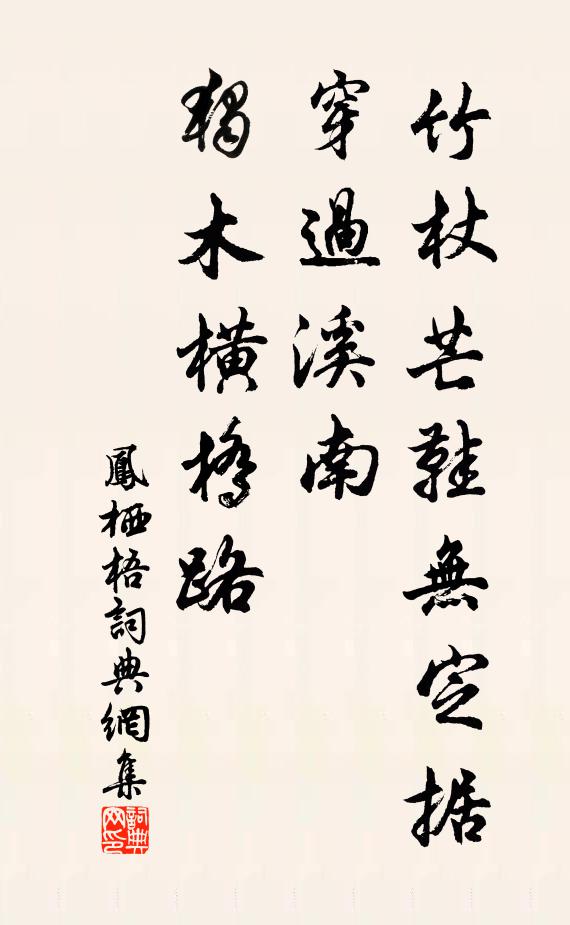 竹杖芒鞋無定据
穿過溪南
獨木橫橋路
鳳栖梧詞典網集
詞典
网印